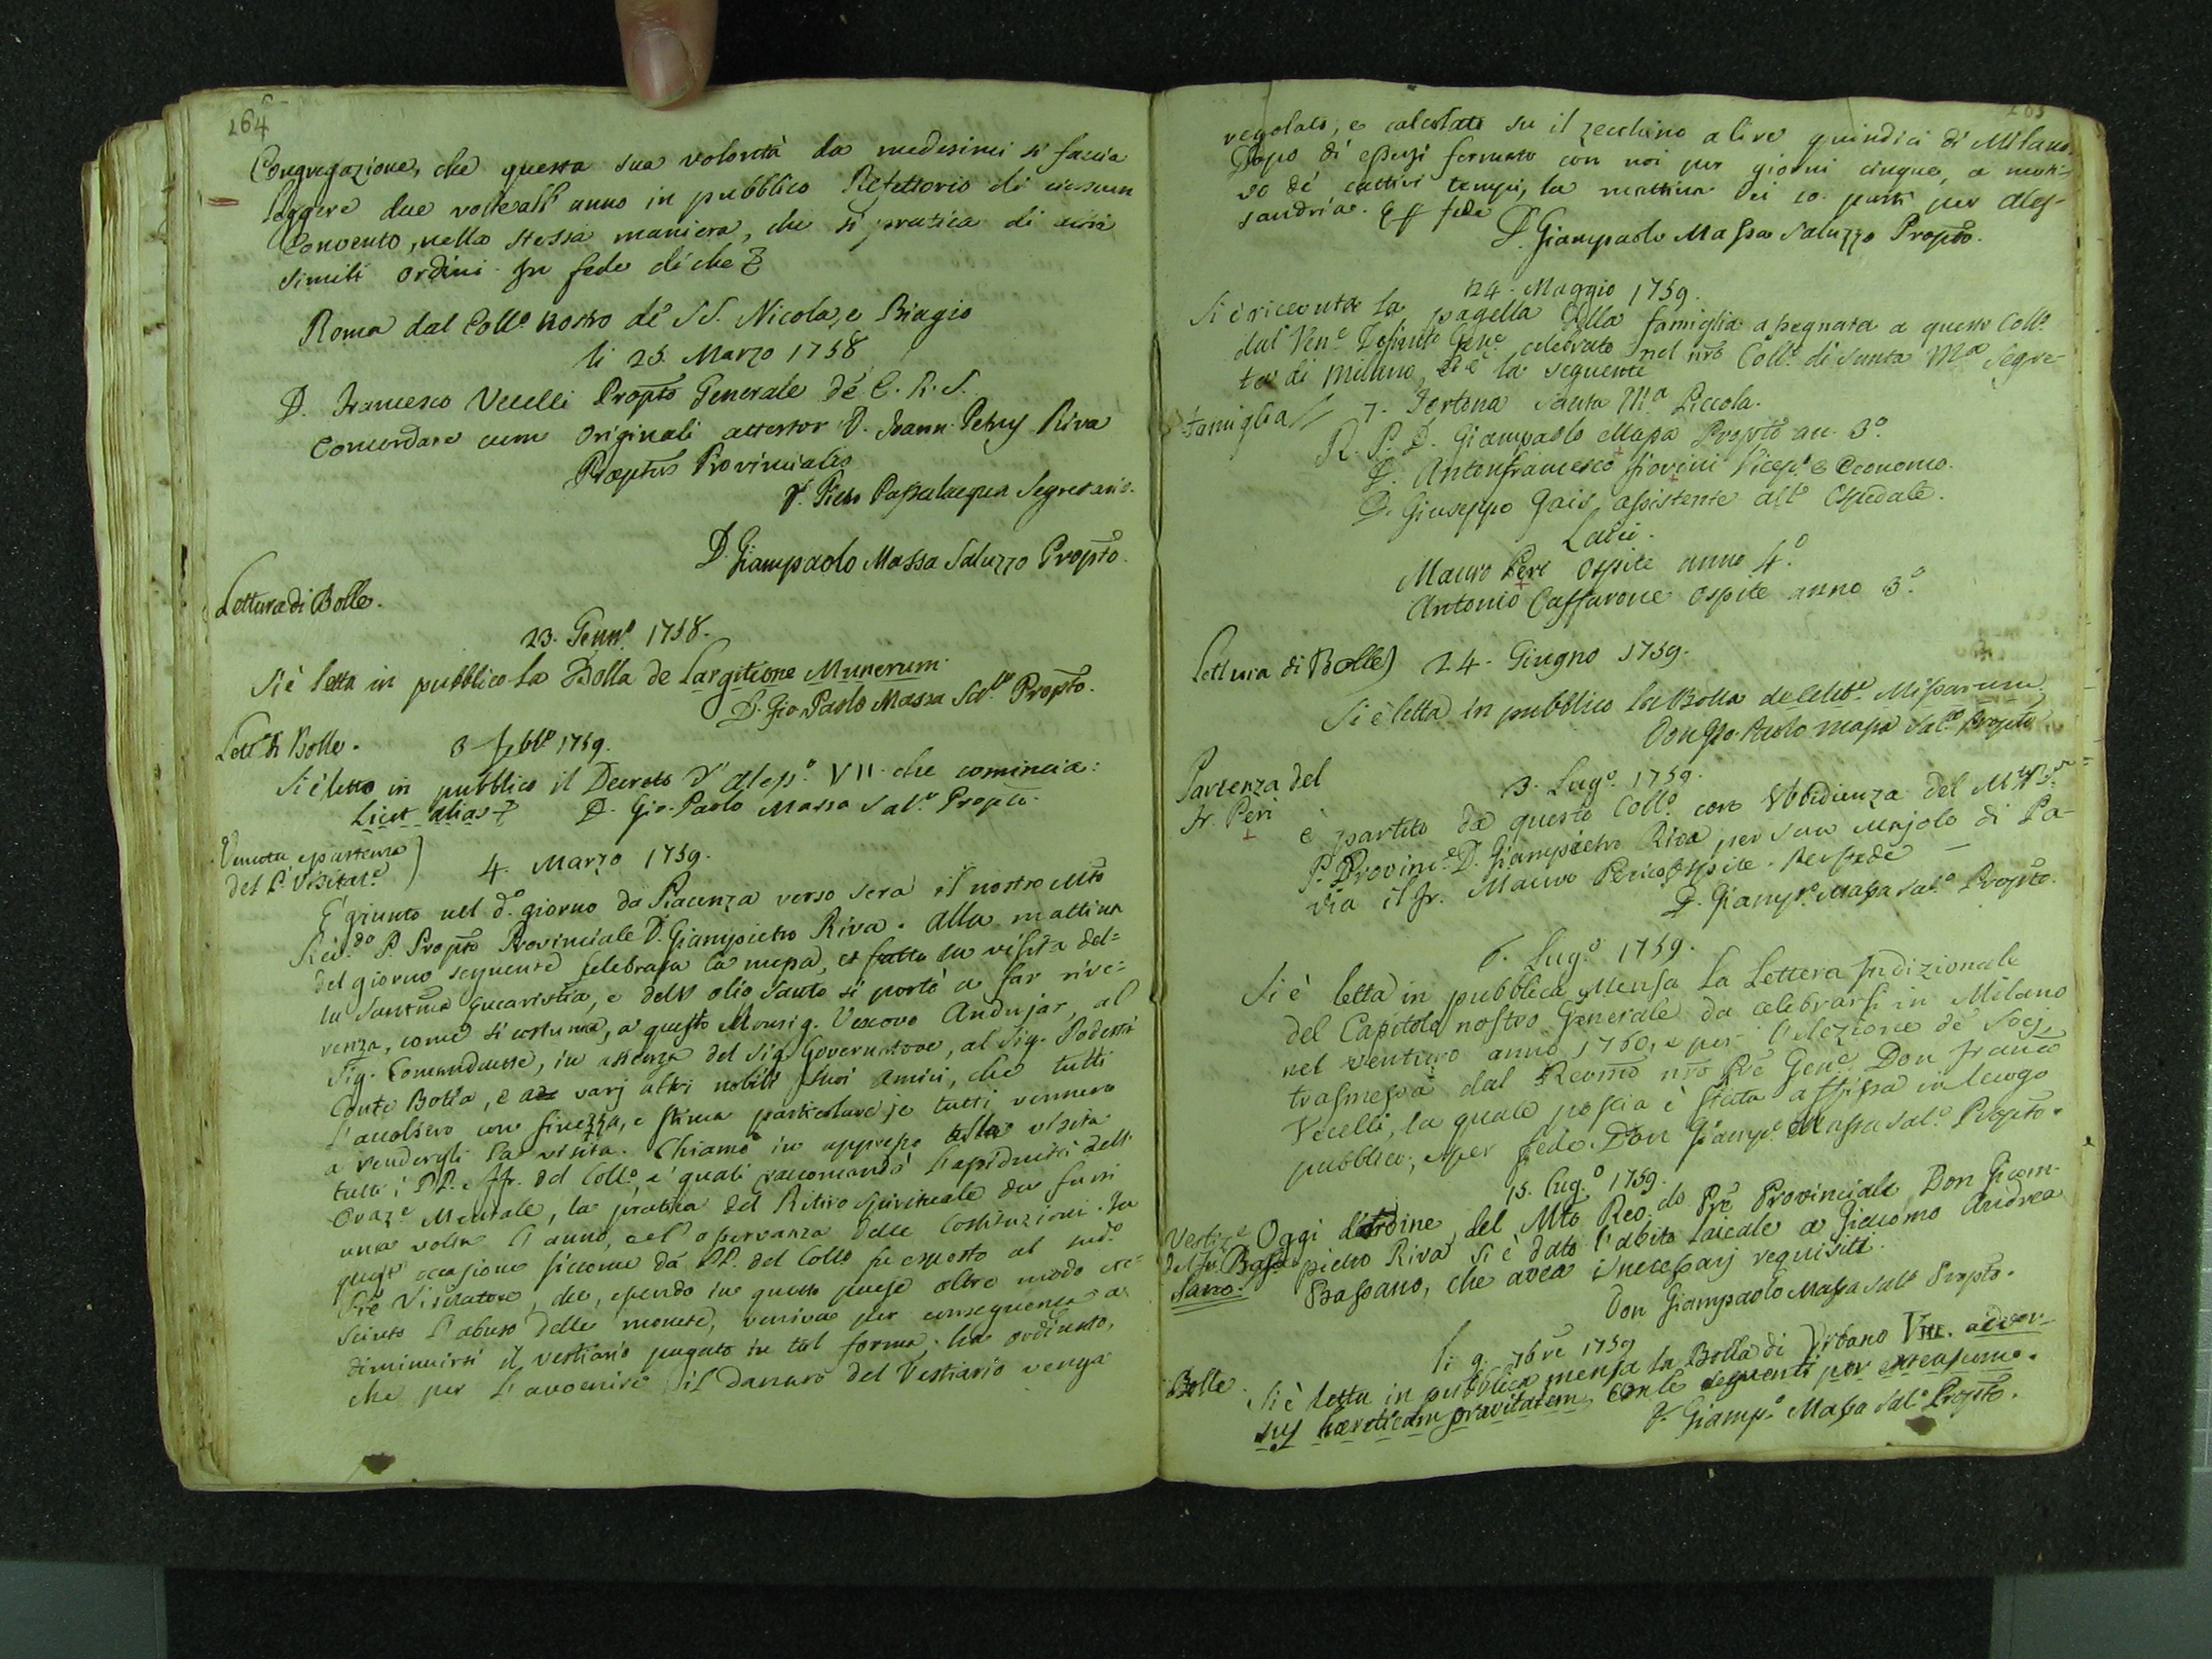 264
Congregazione, che questa sua volontà da medesimi si faccia
leggere due volte all' anno in pubblico Refettorio di ciascun
Convento, nella stessa maniera, che si pratica di altri
simili ordini. In fede di che
Roma dal Coll.o nostro de' SS. Nicola, e Biagio
li 25. Marzo 1758
D. Francesco Vecelli Propto Generale de' C. R. S.
Concordare cum Originali attestor D. Joann. Petrus Riva
Præptus Provincialis
D. Pietro Passalacqua Segretario.
D. Giampaolo Massa Saluzzo Propto.
Lettura di Bolle.
23. Genn.o 1758.
Si è letta in pubblico la Bolla de Largitione Munerum.
D. Gio. Paolo Massa Sal.zo Propto.
Lett.a di Bolle.
3 febb.o 1759.
Si è letto in pubblico il Decreto d' Aless.o VII. che comincia:
Licet alias
D. Gio. Paolo Massa Sal.o Propto.
Venuta e partenza
del P. Visitat.e
4. Marzo 1759.
E' giunto nel d.o giorno da Piacenza verso sera il nostro Mto
Rev.do P. Propto Provinciale D. Giampietro Riva. Alla mattina
del giorno seguente celebrata la messa, et fatta la visita del=
la Santma Eucaristia, e dell' olio Santo si portò a far rive=
renza, come si costuma, a questo Monsig. Vescovo Andujar, al
Sig. Comandante, in assenza del Sig. Governatore, al Sig. Podestà
Conte Botta, e a varj altri nobili suoi amici, che tutti
l' accolsero con finezza, e stima particolare, e tutti vennero
a rendergli la visita. Chiamò in appresso alla visita
tutti i PP. e ff. del Coll.o, a' quali raccomandò l' assiduità dell'
Oraz.e Mentale, la pratica del Ritiro spirituale da farsi
una volta l' anno, e l' osservanza delle Costituzioni. In
quest' occasione siccome da' PP. del Collo fu esposto al sud.o
Pre Visitatore, che, essendo in questo paese oltre modo cre=
sciuto l' abuso delle monete, veniva per conseguenza a
diminuirsi il vestiario pagato in tal forma, ha ordinato,
che per l' avvenire il danaro del Vestiario venga
265
regolato, e calcolato su il zecchino a lire quindici di Milano.
Dopo di essersi fermato con noi per giorni cinque, a moti-
vo de' cattivi tempi, la mattina dei 10. partì per Ales-
sandria. In fede
D. Giampaolo Massa Saluzzo Propto.
24. Maggio 1759.
Si è ricevuta la pagella della famiglia assegnata a questo Coll.o
dal Ven.e Definito Gen.e celebrato nel nro Coll.o di Santa M.a Segre-
ta di Milano, ed è la seguente
Famiglia
7. Tortona Santa M.a Piccola.
R. P. D. Giampaolo Massa Propto an. 3.o
D. Antonfrancesco Fiorini Vicep.o e Economo.
D. Giuseppe Gais, assistente all' Ospedale.
Laici.
Mauro Peri Ospite anno 4.o
Antonio Caffarone ospite anno 3.o
Lettura di Bolle)
24. Giugno 1759.
Si è letta in pubblico la Bolla de celeb.e Missarum.
Don Gio. Paolo Massa Sal.o Propto
Partenza del
Fr. Peri
3. Lug.o 1759.
è partito da questo Coll.o con Ubbidienza del M.to R.do
P. Provin.e D. Giampietro Riva, per San Majolo di Pa-
via il Fr. Mauro Peri Ospite. Per fede
D. Giamp.o Massa Sal.o Propto.
6. Lug.o 1759.
Si è letta in pubblica Mensa la Lettera Indizionale
del Capitolo nostro Generale da celebrarsi in Milano
nel venturo anno 1760, e per l' elezione de' Socj,
trasmessa dal Revmo nro Pre Gen.e Don Franco
Vecelli, la quale poscia è stata affissa in luogo
pubblico, e per fede. Don Giamp.o Massa Sal.o Propto.
15. Lug.o 1759.
Vestiz.e
del fr. Bas-
sano.
Oggi d'ordine del Mto Reo.do Pre Provinciale Don Giam-
pietro Riva si è dato l' abito laicale a Giacomo Andrea
Bassano, che avea i necessarj requisiti.
Don Giampaolo Massa Sal.o Propto.
li 9. 7bre 1759
Bolle.
Si è letta in pubblica mensa la Bolla di Urbano VIII. adver-
sus hæreticam pravitatem, con le seguenti per extensum.
D. Giamp.o Massa Sal.o Propto.